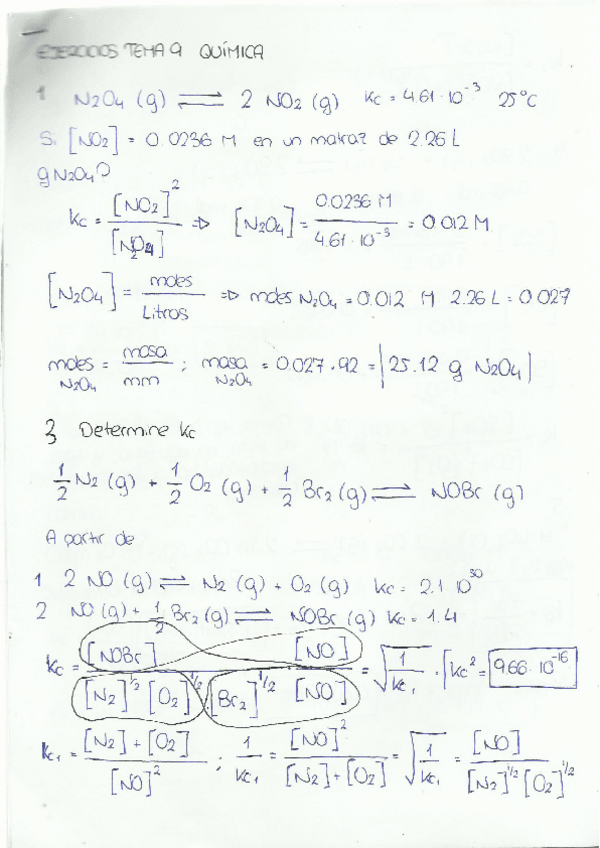 EJERCICIOS TEMA 9 QUÍMICA
1 N2O4 (g) ⇌ 2 NO2 (g) Kc = 4.61·10^-3 25°C
Si [NO2] = 0.0236 M en un matraz de 2.26 L
g N2O4?
Kc = [NO2]^2 / [N2O4] => [N2O4] = 0.0236 M / 4.61·10^-3 = 0.012 M
[N2O4] = moles / Litros => moles N2O4 = 0.012 M 2.26 L = 0.027
moles N2O4 = masa / mm ; masa N2O4 = 0.027·92 = |25.12 g N2O4|
3 Determine Kc
1/2 N2 (g) + 1/2 O2 (g) + 1/2 Br2 (g) ⇌ NOBr (g)
A partir de
1 2 NO (g) ⇌ N2 (g) + O2 (g) Kc = 2.1 10^30
2 NO (g) + 1/2 Br2 (g) ⇌ NOBr (g) Kc = 1.4
Kc = [NOBr] / [N2]^1/2 [O2]^1/2 · [Br2]^1/2 · [NO] / [NO] = √(1 / Kc1) · √Kc^2 = 9.66·10^-16
Kc1 = [N2] + [O2] / [NO]^2 ; 1 / Kc1 = [NO]^2 / [N2] + [O2] = √(1 / Kc1) = [NO] / [N2]^1/2 [O2]^1/2